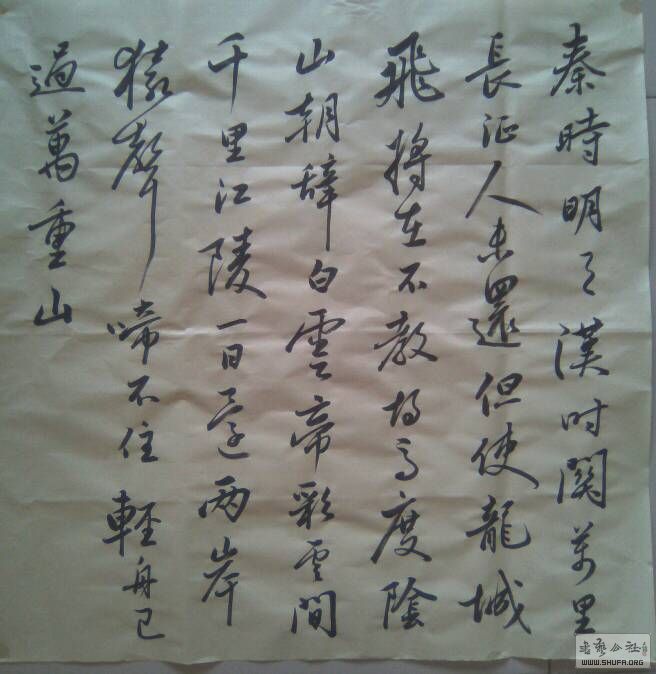 秦時明月漢时関萬里
長征人未還但使龍城
飛將在不教胡馬度陰
山朝辭白雲帝彩雲間
千里江陵一日還两岸
猿聲啼不住輕舟已
過萬重山
書藝公社
WWW.SHUFA.ORG